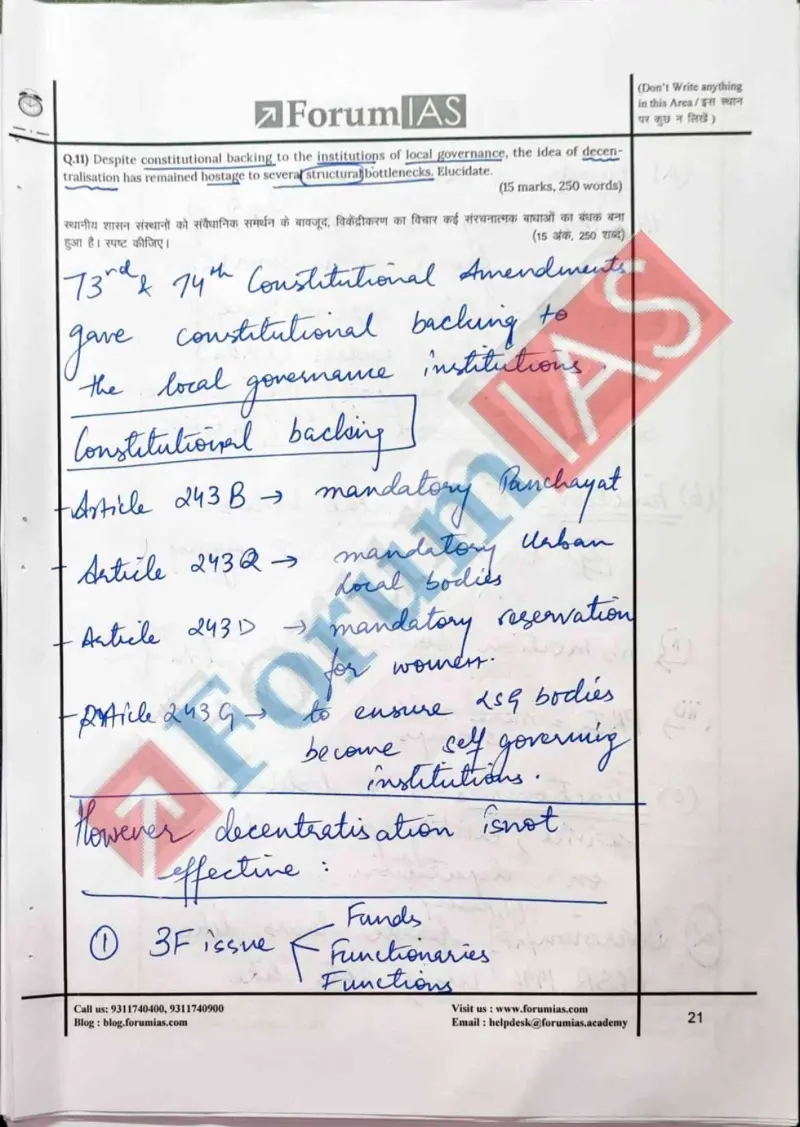 (Don't Write anything
in this Area / इस स्थान
पर कुछ न लिखें )
ForumIAS
Q.11) Despite constitutional backing to the institutions of local governance, the idea of decen-
tralisation has remained hostage to several structural bottlenecks. Elucidate.
(15 marks, 250 words)
स्थानीय शासन संस्थानों को संवैधानिक समर्थन के बावजूद, विकेंद्रीकरण का विचार कई संरचनात्मक बाधाओं का बंधक बना
हुआ है। स्पष्ट कीजिए।
(15 अंक, 250 शब्द)
73rd & 74th Constitutional Amendments
gave constitutional backing to
the local governance institutions.
Constitutional backing
- Article 243B → mandatory Panchayat
- Article 243Q → mandatory Urban
Local bodies
- Article 243D → mandatory reservation
for women.
- Article 243G → to ensure LSG bodies
become self governing
institutions.
However decentralisation is not
effective :
① 3F issue
Funds
Functionaries
Functions
ForumIAS
Call us: 9311740400, 9311740900
Blog : blog.forumias.com
Visit us : www.forumias.com
Email : helpdesk@forumias.academy
21